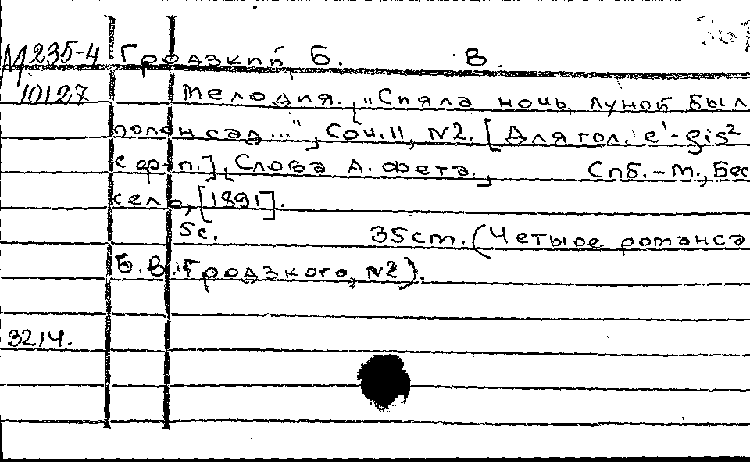 М235-4 Гродзкий, Б. В.
10127 Мелодия. „Спяла ночь, луной был
полон сад...", Соч.11, №2. [Для гол. e'-gis²
с ф-п.], Слова А. Фета., Спб.-М., Бес
сель, [1891].
5с. 35cm. (Четыре романса
Б.В. Гродзкого, №2).
3214.